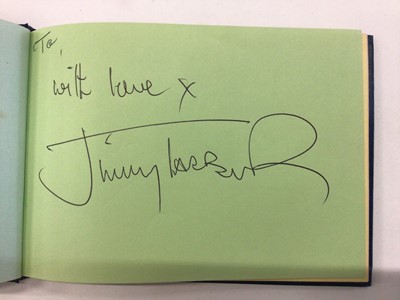 To,
with love x
Jimmy Tarbuck